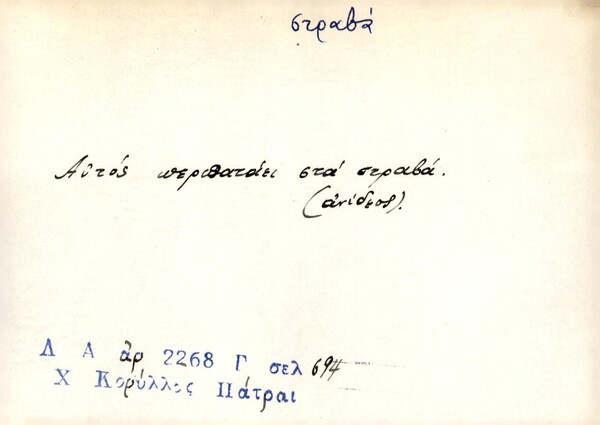 στραβά
Αὐτός περιπατάει στά στραβά.
(ἀνίδεος).
Λ Α ἀρ 2268 Γ σελ 694
Χ Κορύλλος Πάτραι